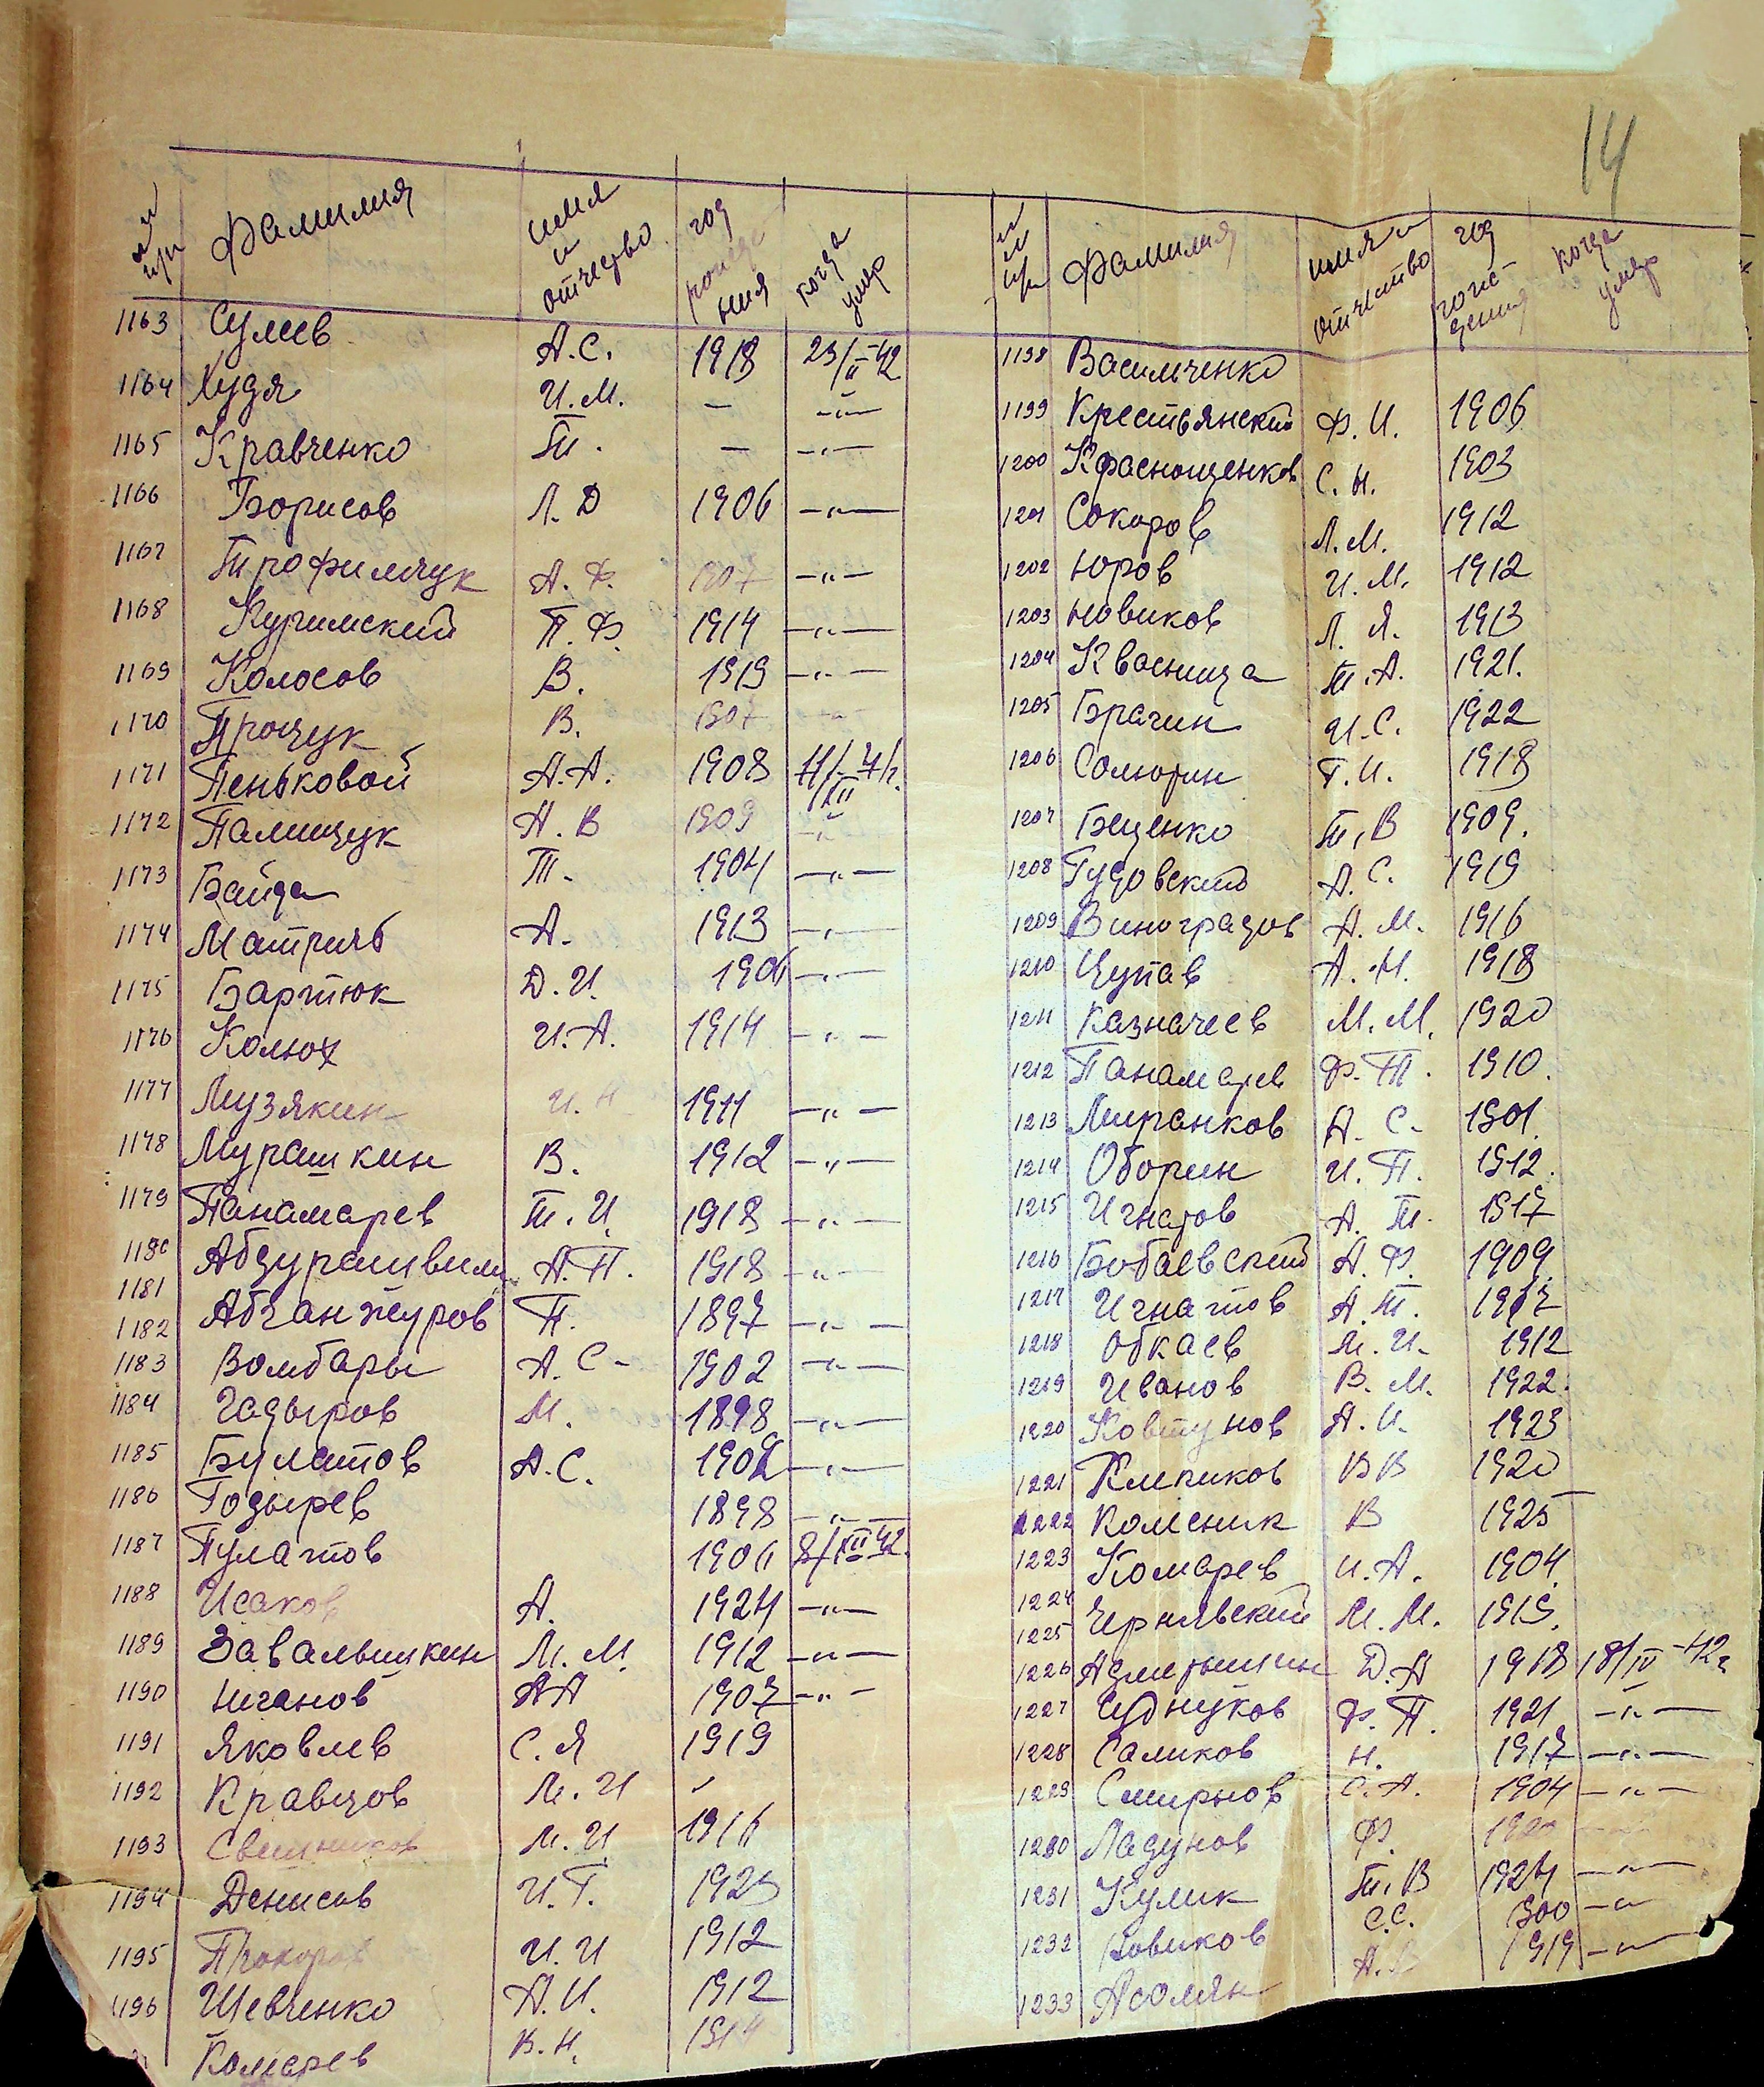 14
№№ п/п Фамилия имя и отчество год рожде ния когда умер
1163 Сулев А.С. 1918 23/II-42
1164 Худя И.М. — —"—
1165 Кравченко Т. — —"—
1166 Борисов Л.Д 1906 —"—
1167 Трофимчук А.Ф. 1907 —"—
1168 Кучимский П.Ф. 1914 —"—
1169 Колосов В. 1919 —"—
1170 Процук В. 1907 —"—
1171 Пеньковой А.А. 1908
1172 Палищук Н.В 1909 —"—
1173 Байда Т. 1904 —"—
1174 А. 1913 —"—
1175 Бартюк Д.И. —"—
1176 Колюх И.А. 1914 —"—
1177 Музякин И.Н 1911 —"—
1178 Мурашкин В. 1912 —"—
1179 Панамарев Т.И. 1918 —"—
1180 Абдурашвили А.П. 1918 —"—
1181
1182 Абганжуров П. 1897 —"—
1183 Вомбары А.С- 1902 —"—
1184 Гадыров М. 1898 —"—
1185 Булатов А.С. —"—
1186 Годырев 1898 —"—
1187 Пулатов 8/XII 42.
1188 Исаков А. 1924 —"—
1189 Завальишкин М.М. 1912 —"—
1190 Ниганов АА 1907 —"—
1191 Яковлев С.Я 1919
1192 Кравцов М.И
1193 М.И. 1916
1194 Денисов И.Г. 1923
1195 Прохоров И.И 1912
1196 Шевченко А.И. 1912
Комарев В.Н. 1914
№№ п/п Фамилия имя и отчество год рож- дения когда умер
1198 Васильченко
1199 Крестьянский Ф.И. 1906
1200 Краснощенков С.Н. 1903
1201 Сокоров Л.М. 1912
1202 Юров И.М. 1912
1203 Новиков Л.Я. 1913
1204 Квасница Т.А. 1921.
1205 Брагин И.С. 1922
1206 Солюрин Г.И. 1918
1207 Беценко Т.В 1909.
1208 Гудовский А.С. 1919
1209 Виноградов А.М. 1916
1210 Цупав А.Н. 1918
1211 Казначеев М.М. 1920
1212 Панамарев Ф.П. 1910.
1213 Миранков А.С- 1901.
1214 Оборин И.П. 1912.
1215 Игнатов А.Т. 1917
1216 Бобаевский А.Ф. 1909
1217 Игнатов А.Т. 1917
1218 Обкаев М.И. 1912
1219 Иванов В.М. 1922.
1220 Ковтунов А.И. 1923
1221 Клепиков ВВ 1920
1222 Колесник В 1925
1223 Комарев И.А. 1904.
1224
1225 Чернявский М.М. 1919.
1226 Д.А 1918 18/IV-42г
1227 Чубнуков Ф.П. 1921 —"—
1228 Саликов Н. 1917 —"—
1229 Смирнов С.А. 1904 —"—
1230 Ладунов Ф. 1920 —"—
1231 Кулик Т.В 1924 —"—
1232 Новиков С.С. 1900 —"
1233 Асолян А.В 1919 —"—